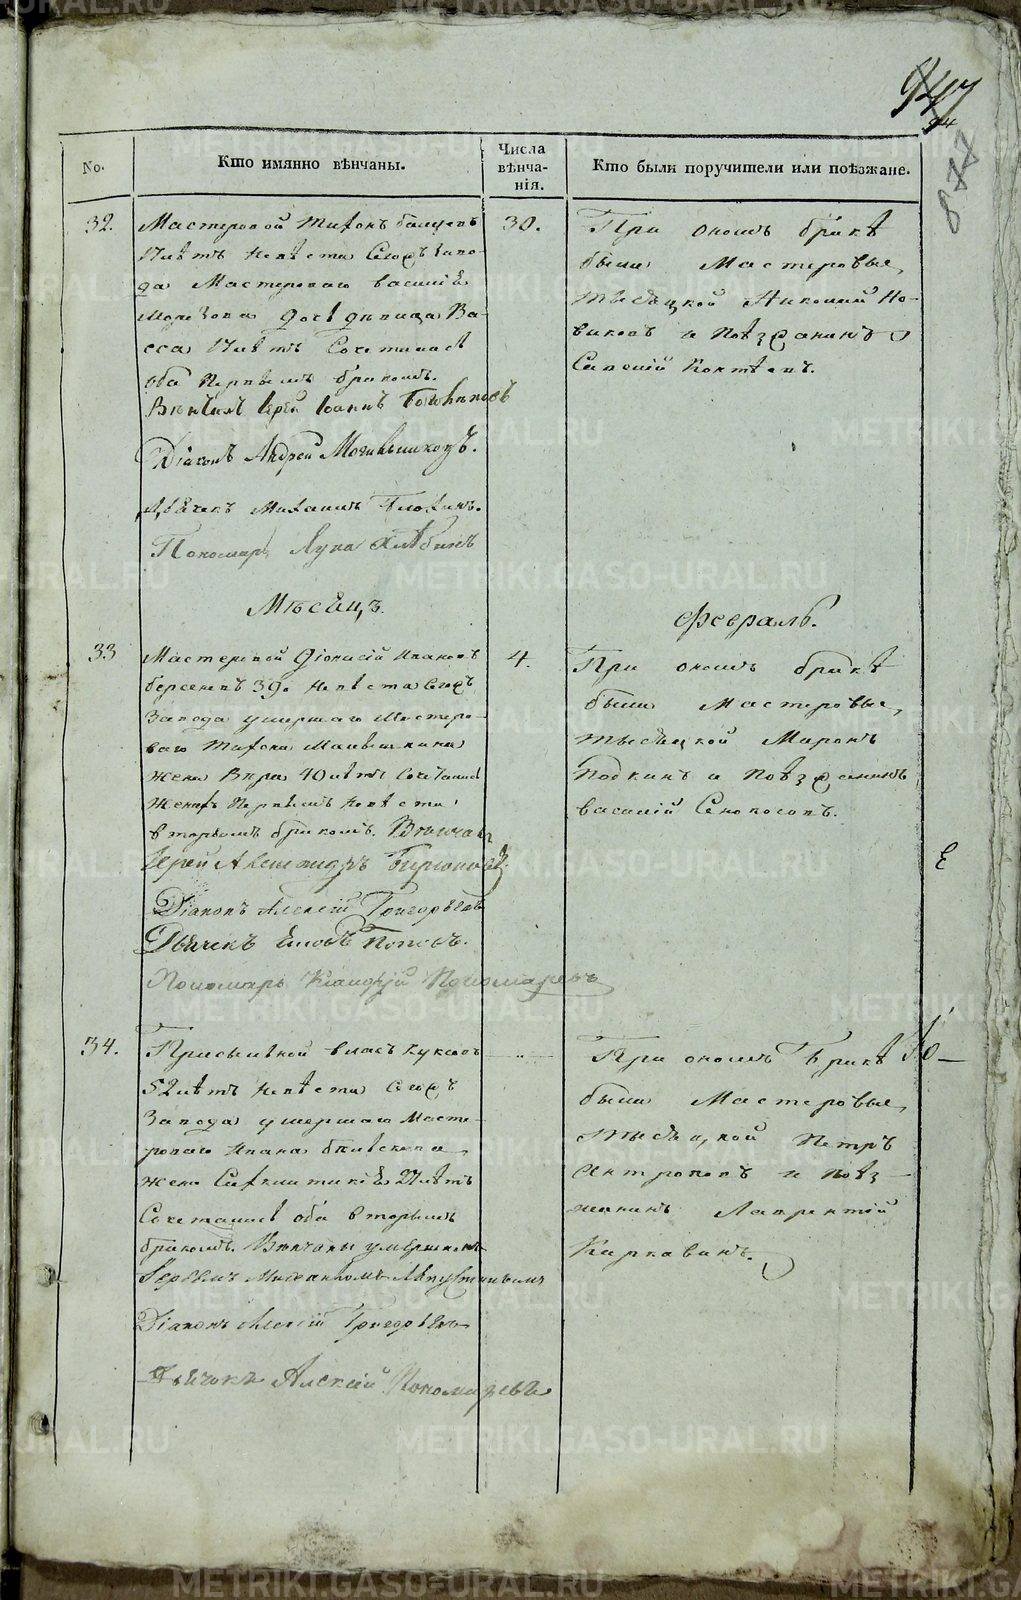 94
877
No.
Кто имянно вѣнчаны.
Числа вѣнча-нія.
Кто были поручители или поѣзжане.
32.
Мастеровой Тихонъ
17 лѣтъ невѣста Сегоже заво-
да Мастероваго Василія
Морозова дочь дѣвица Ва-
сса 17 лѣтъ Сочеталися
оба первымъ бракомъ.
Вѣнчалъ Іерей Іоаннъ
Діаконъ Андрей Могильниковъ.
Дьячекъ Михаилъ
Пономарь Лука Хлѣбинъ
30.
При ономъ бракѣ
были Мастеровые,
тысяцкой Никоний Но-
виковъ и поѣзжанинъ
Савелій Коктевъ.
Мѣсяцъ
Февраль.
33
Мастеровой Діонисій Ивановъ
Берсеневъ 39. невѣста Сегожъ
Завода умершаго Мастеро-
ваго Тихона
жена Вера 40 лѣтъ Сочетались
Женихъ первымъ невѣста
вторымъ бракомъ. Вѣнчалъ
Іерей Александръ Бирюковъ
Діаконъ Алексій Григорьевъ
Дьячекъ Поповъ.
Пономарь Клавдій Пономаревъ
4.
При ономъ бракѣ
были Мастеровые,
тысяцкой Миронъ
Подкинъ и поѣзжанинъ
Василій Сенокосовъ.
34.
Приписной Власъ Куклинъ
52 лѣтъ невѣста Сегожъ
Завода умершаго Масте-
роваго Ивана
жена 27 лѣтъ
Сочетались оба вторымъ
бракомъ. Вѣнчаны умершимъ
Іереемъ
Діаконъ Алексій Григорьевъ
Дьячокъ Алексій Пономаревъ
При ономъ Бракѣ
были Мастеровые,
тысяцкой Петръ
Антроповъ и поѣз-
жанинъ Лаврентій
Каркавинъ.
METRIKI.GASO-URAL.RU